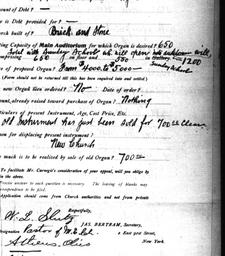 Amount of Debt —
is Debt provided for? —
Church built of? Brick and Stone
ting Capacity of Main Auditorium for which Organ is desired? 650
and with Sunday School at will open
650 on floor and 550 in Gallery 1200
of proposed Organ? From $4000 to $5000 —
(Form should not be returned till this has been inquired into and settled.)
new Organ been ordered? No Date of order?
ount, already raised toward purchase of Organ? Nothing
iculars of present Instrument, Age, Cost Price, Etc.
old Instrument has just been sold for 700.00 Clear
son for displacing present instrument?
New Church
much is to be realized by sale of old Organ? 700.00
To facilitate Mr. Carnegie's consideration of your appeal, will you oblige by
in the above.
Precise answer to each question is necessary. The leaving of blanks may
respondence to be filed.
Application should come from Church authorities and not from private
Respectfully,
JAS. BERTRAM, Secretary,
W. L. Slutz
esignation Pastor of M. E. Ch. 2 East 91st Street,
Athens, Ohio New York.